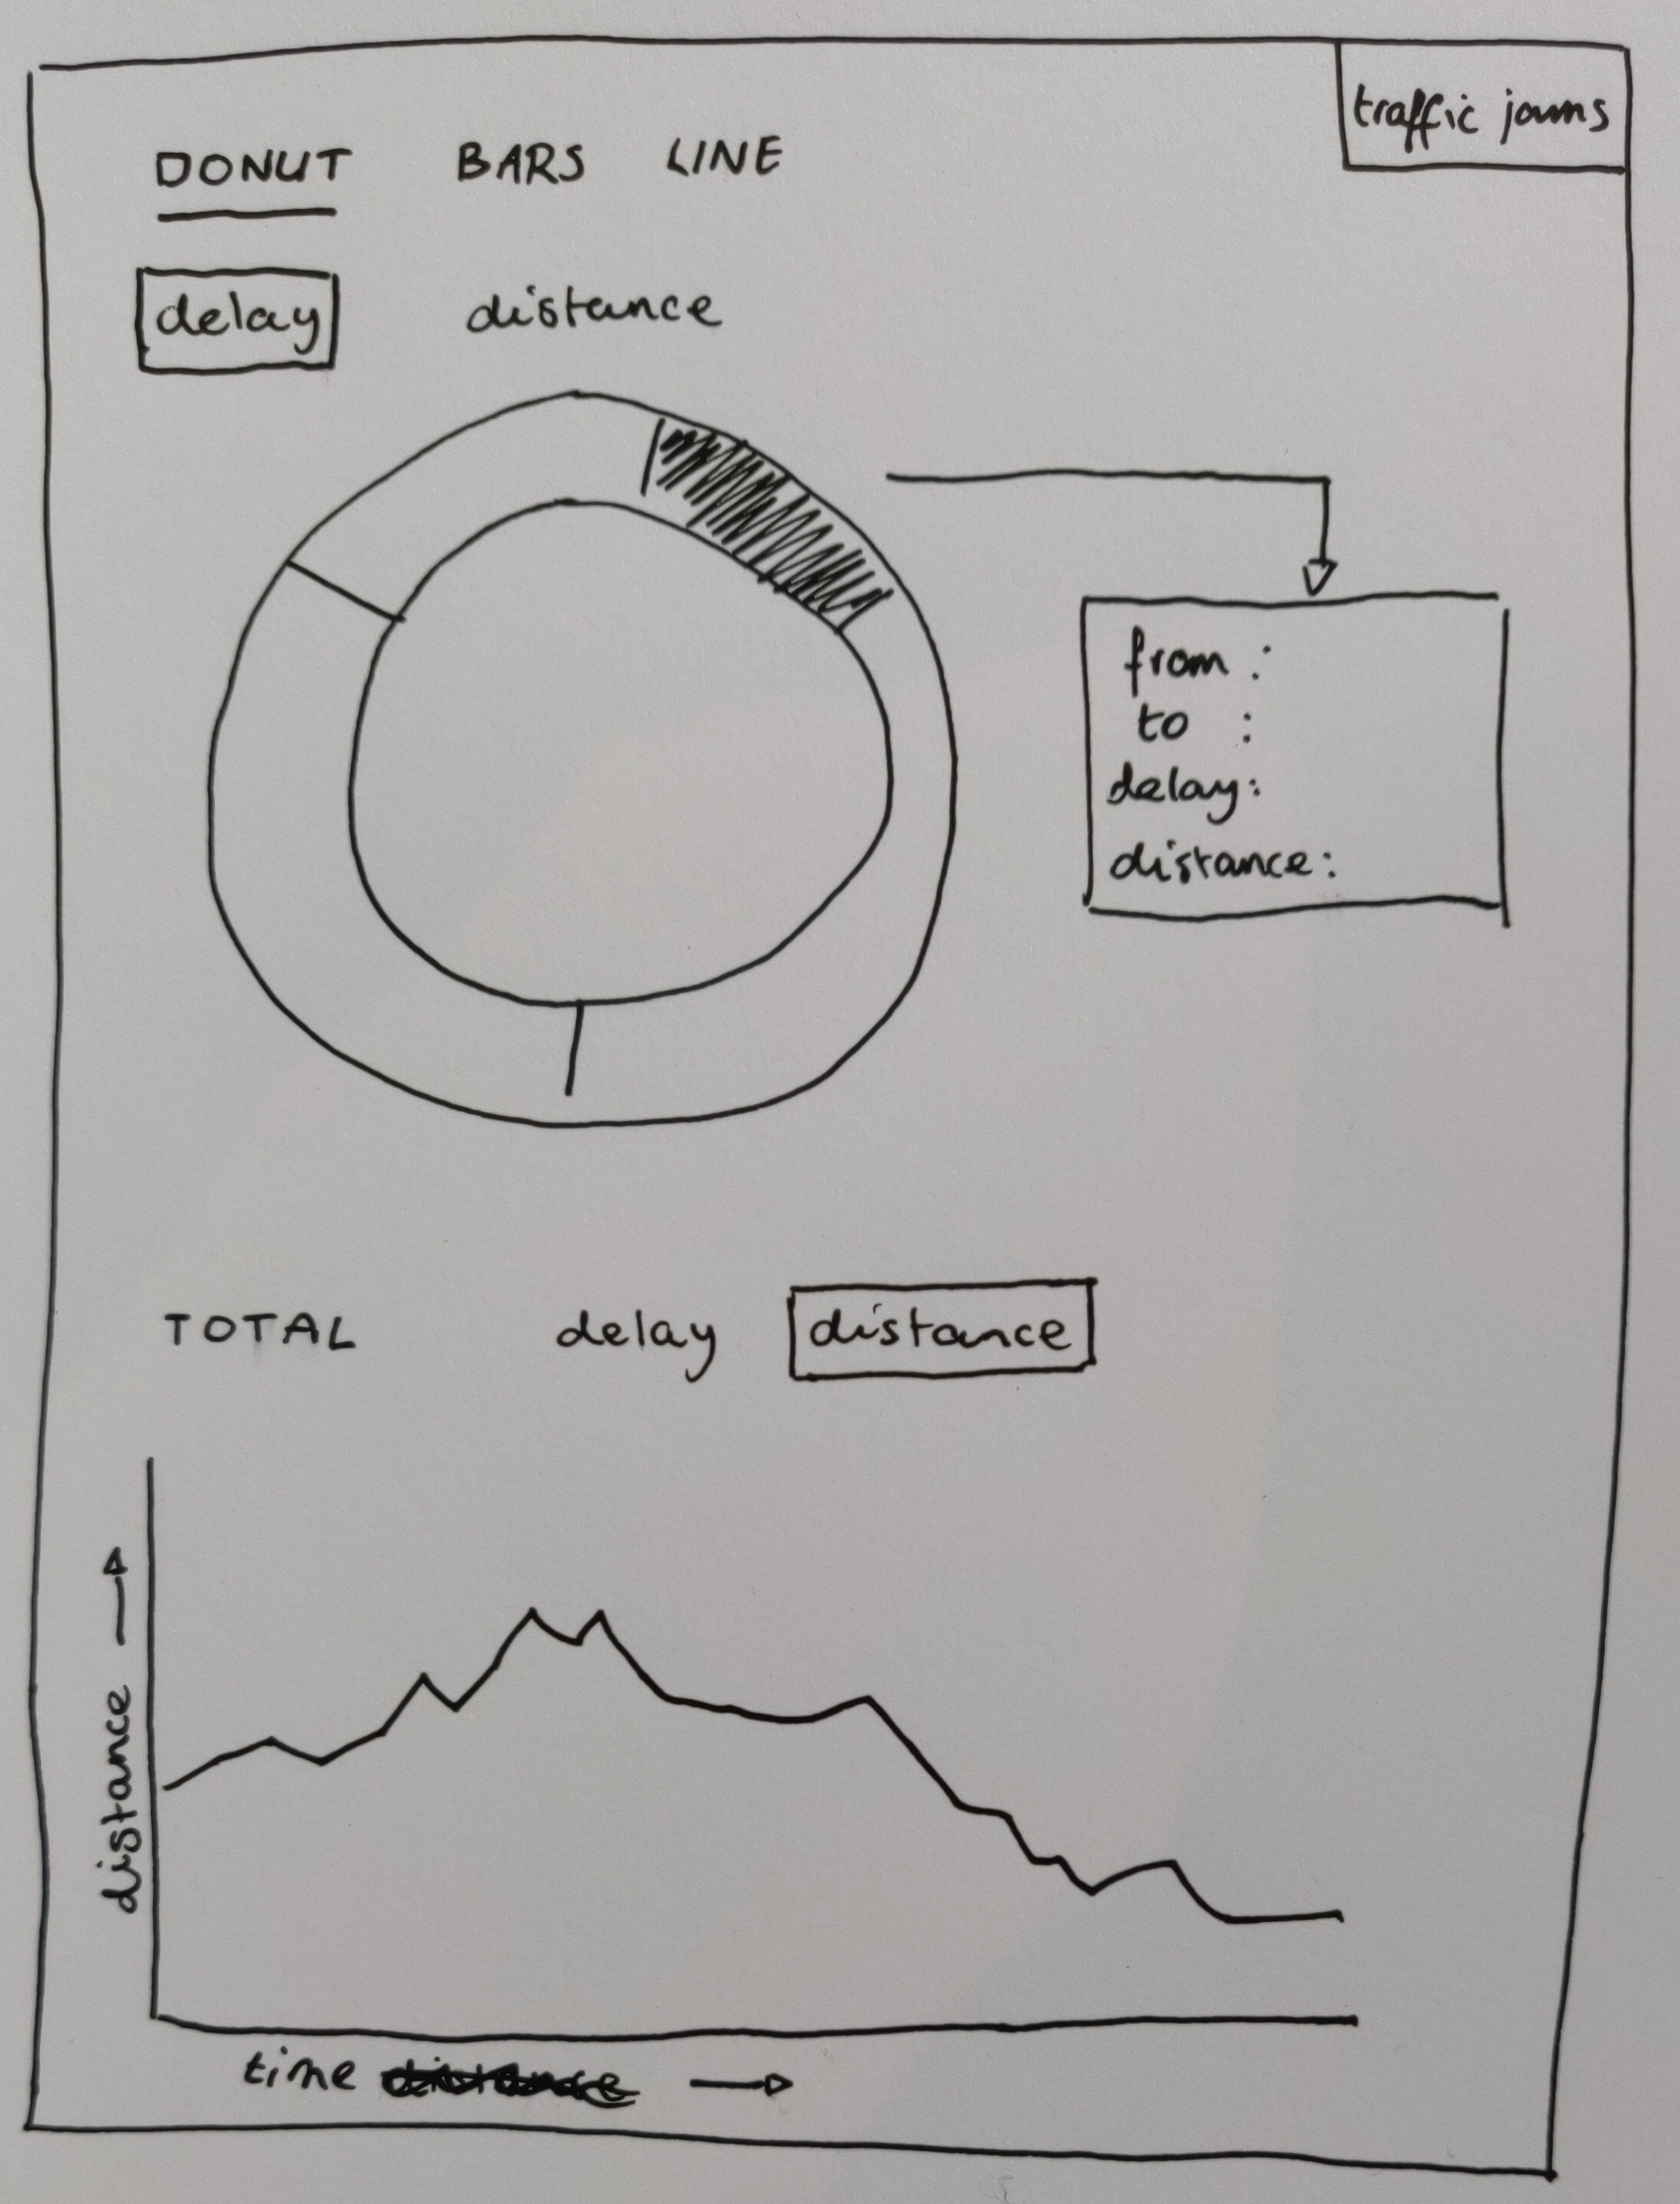 traffic jams
DONUT BARS LINE
delay distance
from :
to :
delay:
distance:
TOTAL delay distance
distance
time distance